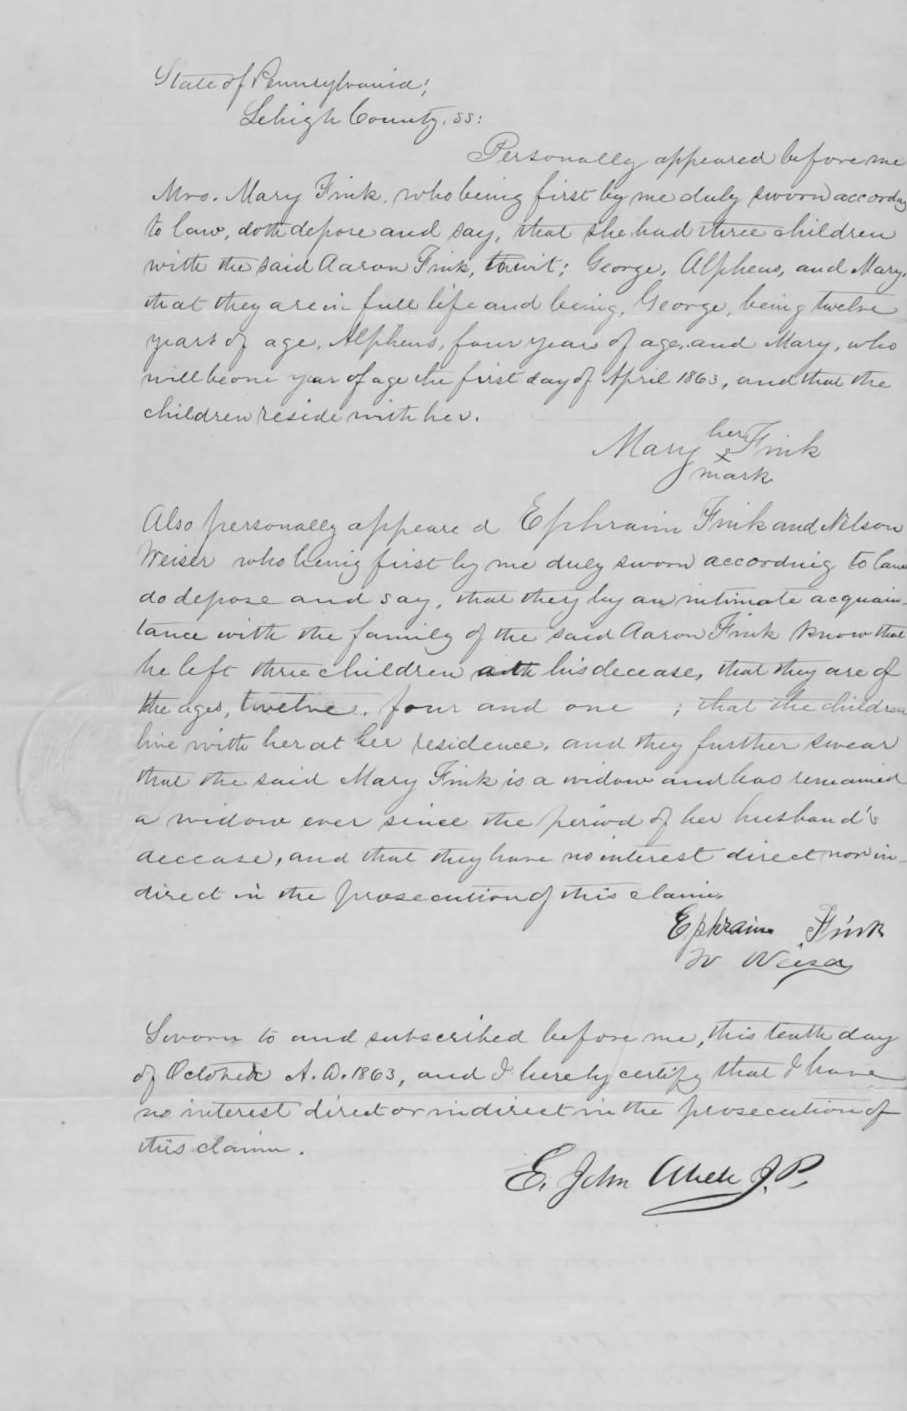 State of Pennsylvania;
Lehigh County. ss:
Personally appeared before me
Mrs. Mary Fink, who being first by me duly sworn according
to law, doth depose and say, that she had three children
with the said Aaron Fink, towit; George, Alpheus, and Mary,
that they are in full life and being, George, being twelve
years of age, Alpheus, four years of age, and Mary, who
will be one year of age the first day of April 1863, and that the
children reside with her.
her
Mary x Fink
mark
Also personally appeared Ephraim Fink and Nelson
Weiser who being first by me duly sworn according to law
do depose and say, that they by an intimate acquain-
tance with the family of the said Aaron Fink know that
he left three children at his decease, that they are of
the ages, twelve, four and one ; that the children
live with her at her residence, and they further swear
that the said Mary Fink is a widow and has remained
a widow ever since the period of her husband's
decease, and that they have no interest direct nor in-
direct in the prosecution of this claim.
Ephraim Fink
Weiser
Sworn to and subscribed before me, this tenth day
of October A.D. 1863, and I hereby certify that I have
no interest direct or indirect in the prosecution of
this claim.
E. John Abele J.P.